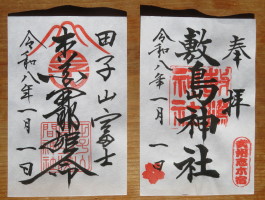 田子山富士
木花開耶姫命
令和八年一月一日
奉拝
敷島神社
令和八年一月一日